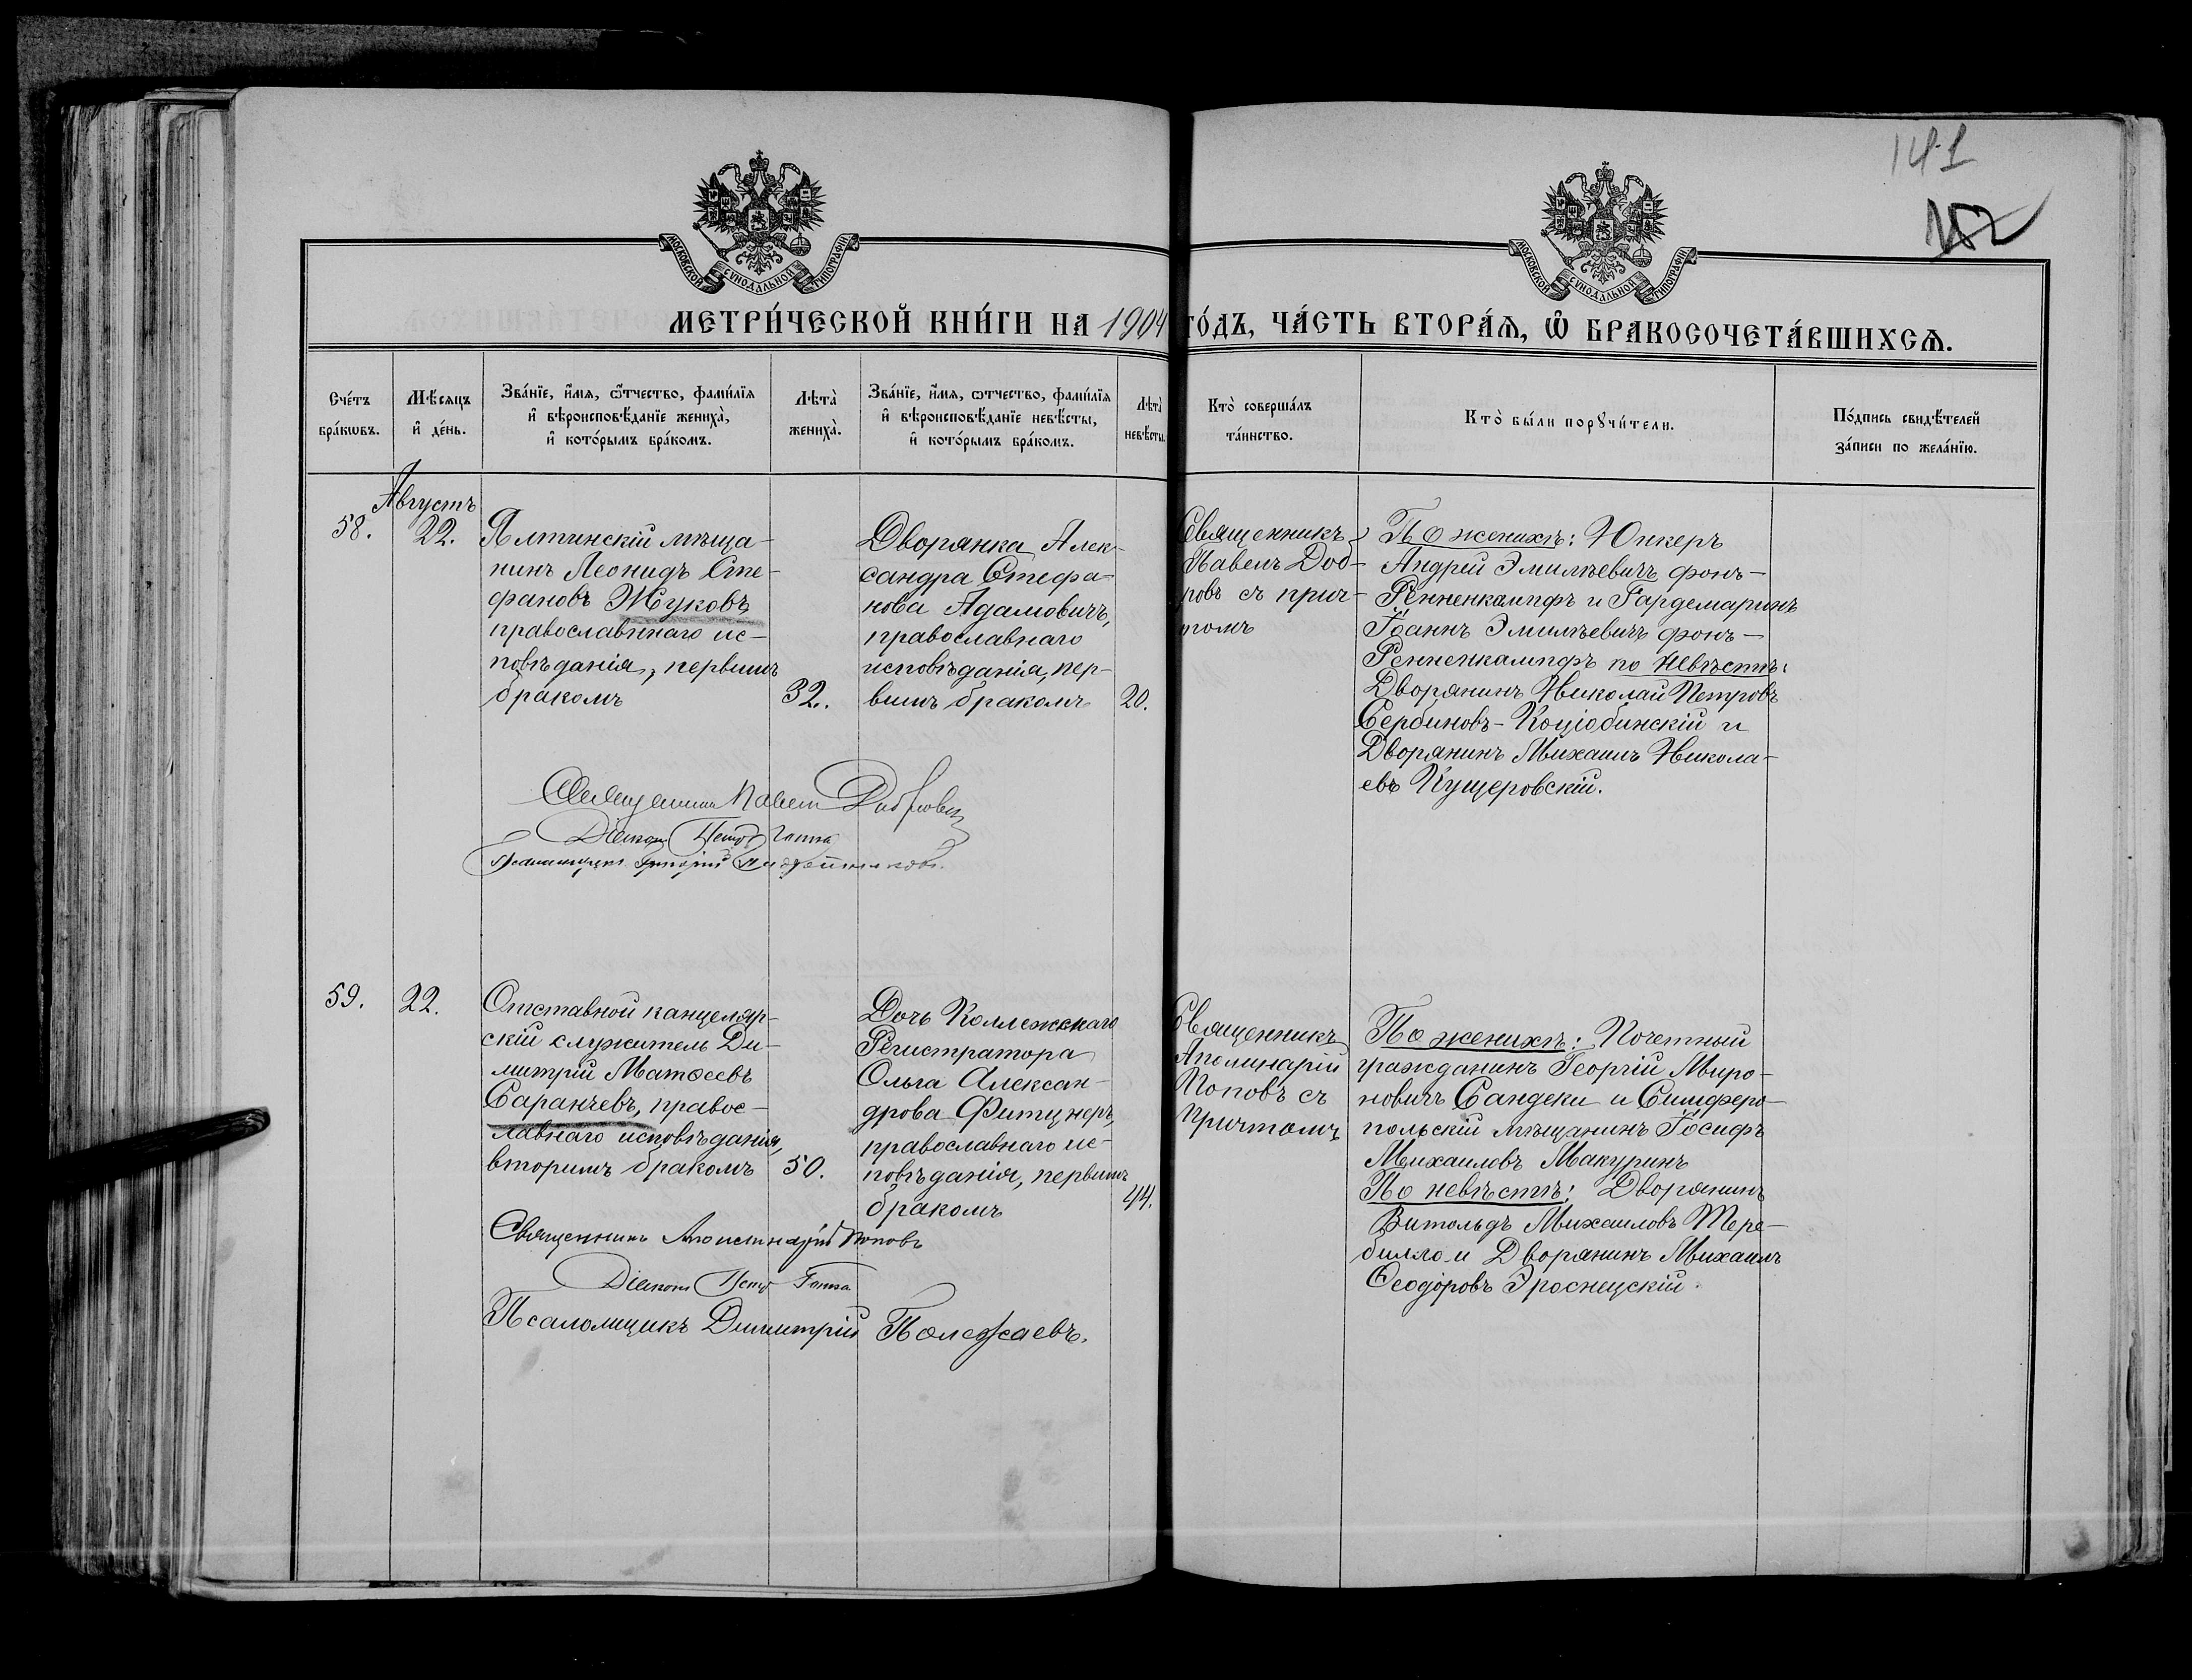 141
МОСКОВСКОЙ СѴНОДАЛЬНОЙ ТИПОГРАФІИ
МОСКОВСКОЙ СѴНОДАЛЬНОЙ ТИПОГРАФІИ
МЕТРИ́ЧЕСКОЙ КНИ́ГИ НА 1904 ГО́ДЪ, ЧА́СТЬ ВТОРА́Ѧ, Ѡ҆ БРАКОСОЧЕТА́ВШИХСѦ.
Сче́тъ
бра́кѡвъ.
Мѣ́сѧцъ
и҆ де́нь.
Зва́нїе, и҆́мѧ, ѻ҆́тчество, фами́лїѧ
и҆ вѣроисповѣ́данїе жениха̀,
и҆ кото́рымъ бра́комъ.
Лѣ́та̀
жениха̀.
Зва́нїе, и҆́мѧ, ѻ҆́тчество, фами́лїѧ
и҆ вѣроисповѣ́данїе невѣ́сты,
и҆ кото́рымъ бра́комъ.
Лѣ́та̀
невѣ́сты.
Кто̀ соверша́лъ
та́инство.
Кто̀ бы́ли порꙋчи́тели.
По́дпись свидѣ́телей
за́писи по жела́нїю.
Августъ
58.
22.
Ялтинскій мѣща-
нинъ Леонидъ Сте-
фановъ Жуковъ
православннаго ис-
повѣданія, первымъ
бракомъ
32.
Дворянка Алек-
сандра Стефа-
нова Адамовичъ,
православнаго
исповѣданія, пер-
вымъ бракомъ
20.
Священникъ
Павелъ Доб-
ровъ съ прич-
томъ
По женихѣ: Юнкеръ
Андрей Эмильевичъ фонъ-
Ренненкампфъ и Гардемаринъ
Іоаннъ Эмильевичъ фонъ-
Ренненкампфъ по невѣстѣ:
Дворянинъ Николай Петровъ
Сербиновъ-Коцюбинскій и
Дворянинъ Михаилъ Никола-
евъ Кущеровскій.
Священникъ Павелъ Добровъ
Діаконъ Петръ Гопка
Псаломщикъ Григорій
59.
22.
Отставной канцеляр-
скій служитель Ди-
митрій Матѳеевъ
Саранчевъ, правос-
лавнаго исповѣданія,
вторымъ бракомъ
50.
Дочь Коллежскаго
Регистратора
Ольга Алексан-
дрова Фитцнеръ,
православнаго ис-
повѣданія, первымъ
бракомъ
44.
Священникъ
Аполинарій
Поповъ съ
Причтомъ
По женихѣ: Почетный
гражданинъ Георгій Миро-
новичъ Сандеки и Симферо-
польскій мѣщанинъ Іосифъ
Михаиловъ Макуринъ
По невѣстѣ: Дворянинъ
Витольдъ Михаиловъ Тере-
билло и Дворянинъ Михаилъ
Ѳеодоровъ Яроснецскій.
Священникъ Аполинарій Поповъ
Діаконъ Петръ Гопка
Псаломщикъ Димитрій Полежаевъ.